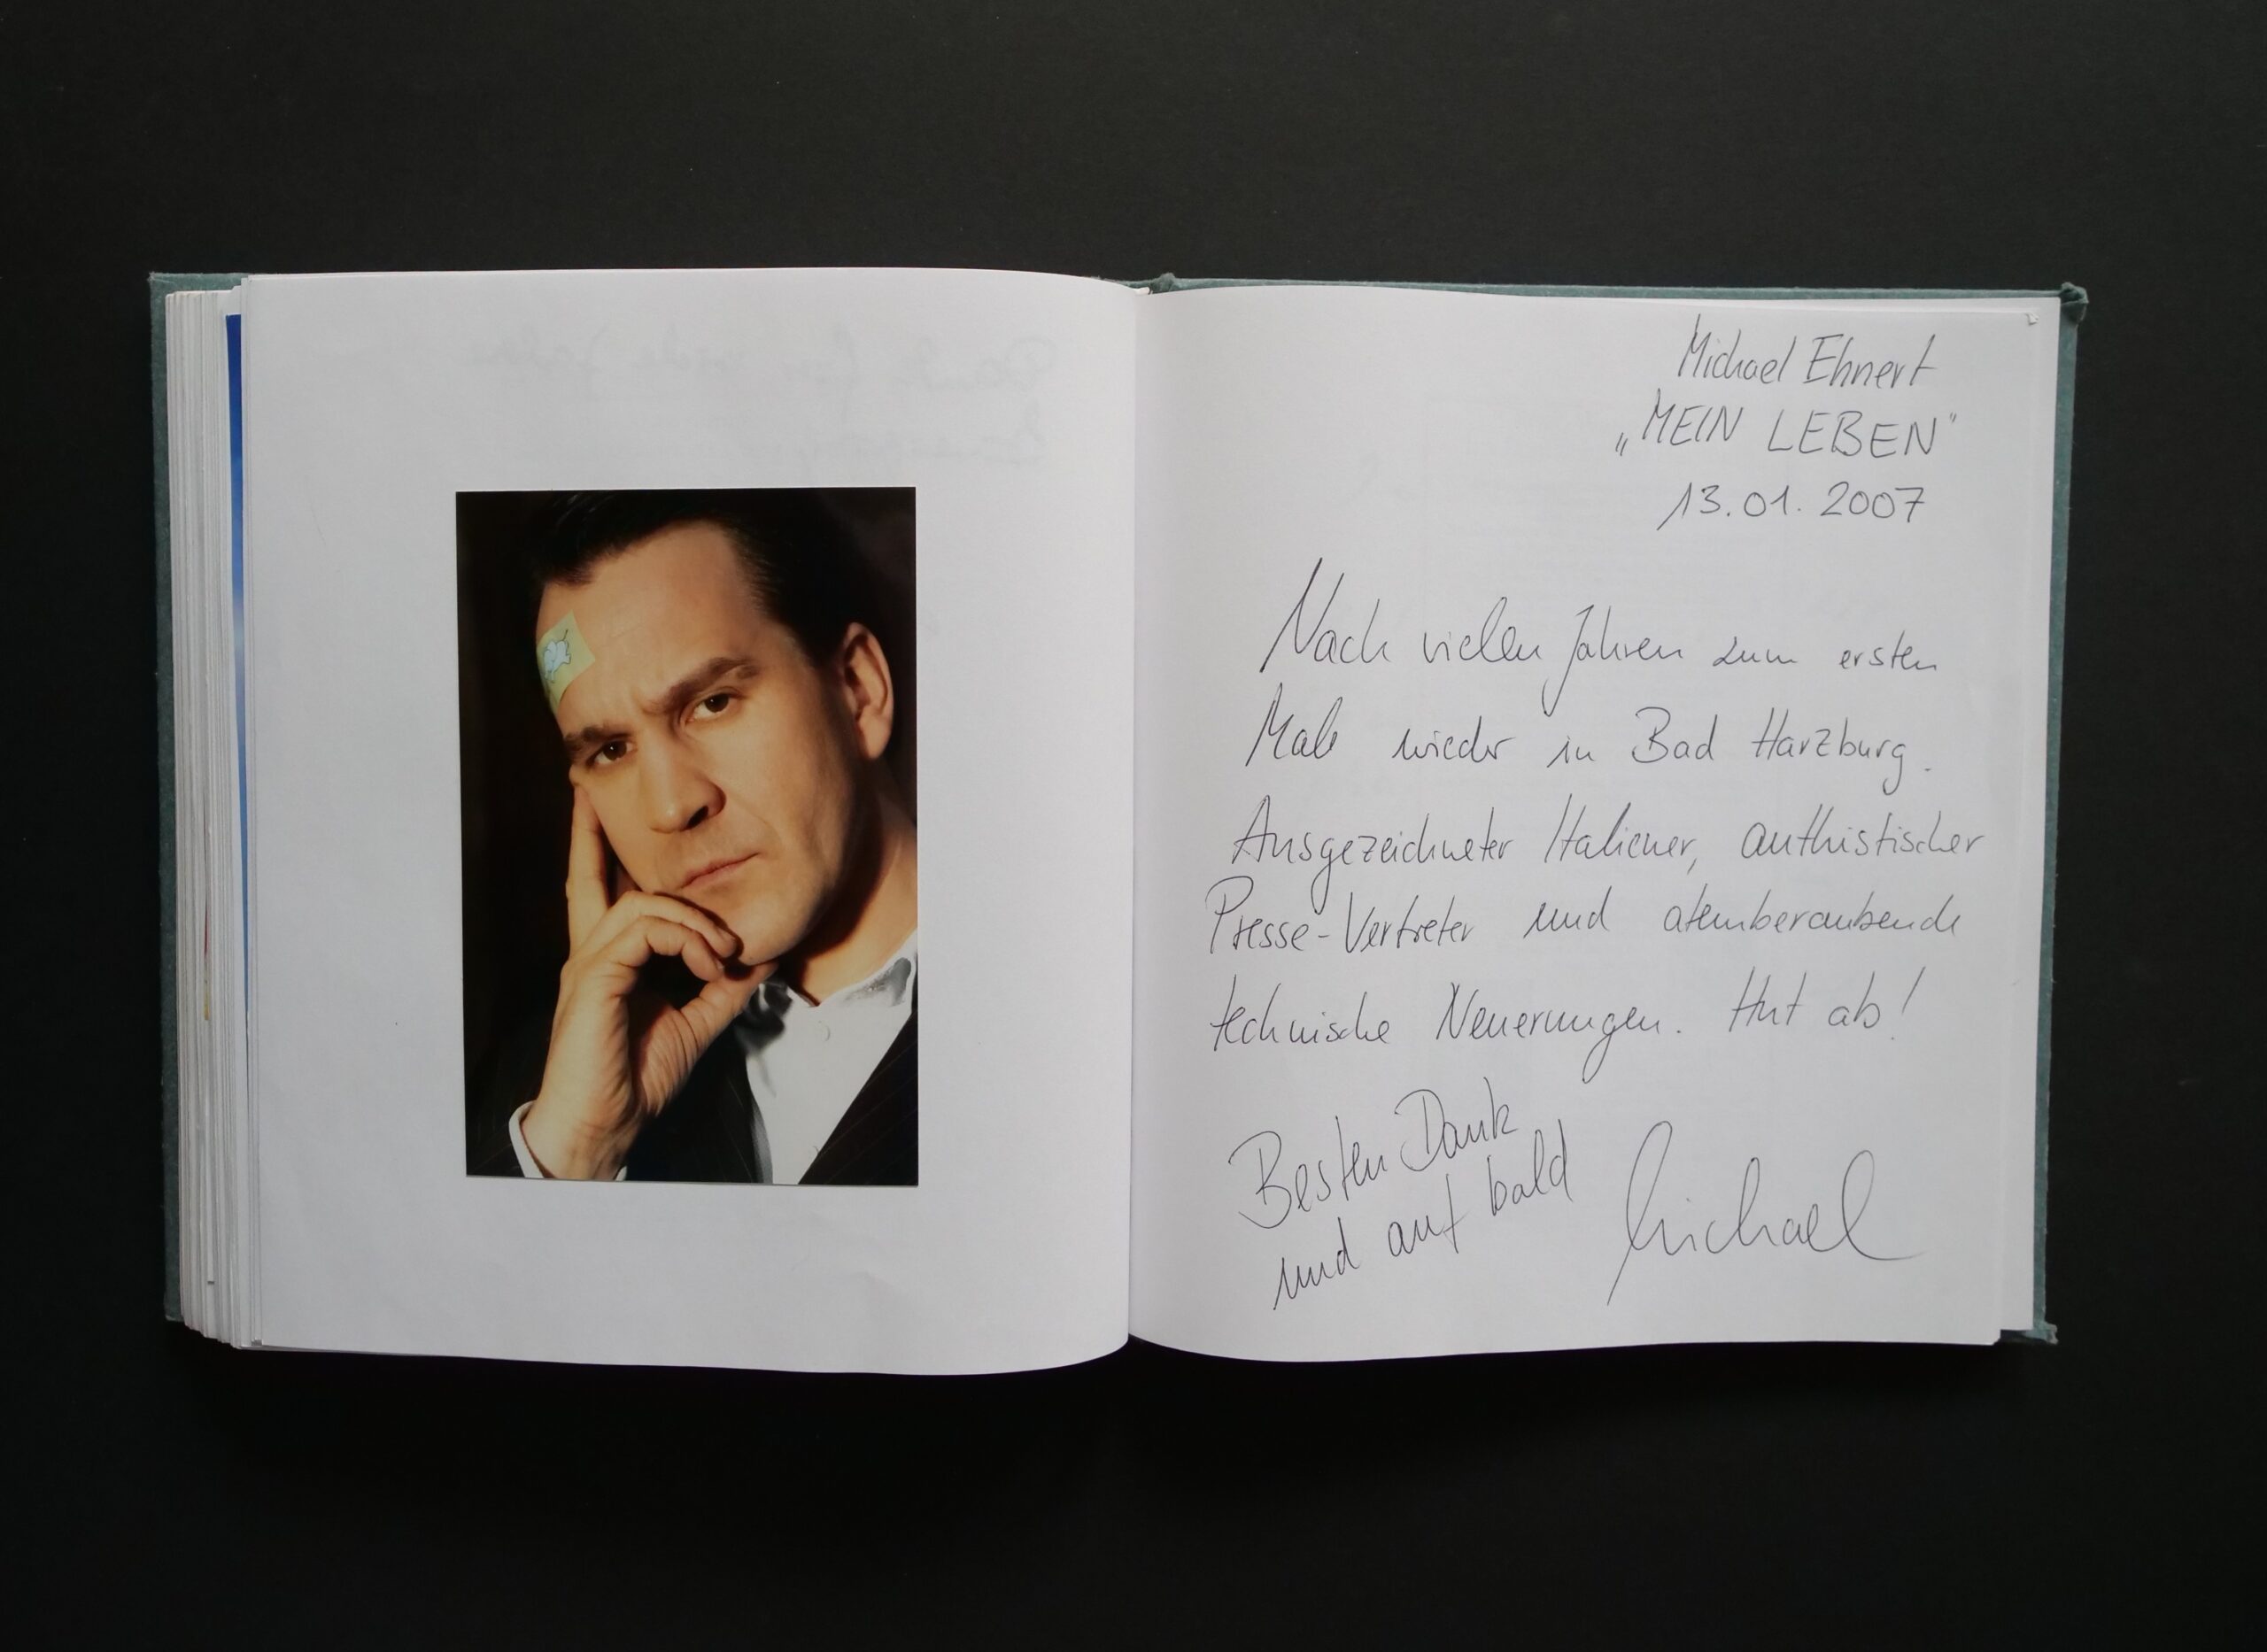 Michael Ehnert
„MEIN LEBEN"
13.01.2007
Nach vielen Jahren zum ersten
Male wieder in Bad Harzburg.
Ausgezeichneter Italiener, authistischer
Presse-Vertreter und atemberaubende
technische Neuerungen. Hut ab!
Besten Dank
und auf bald
Michael